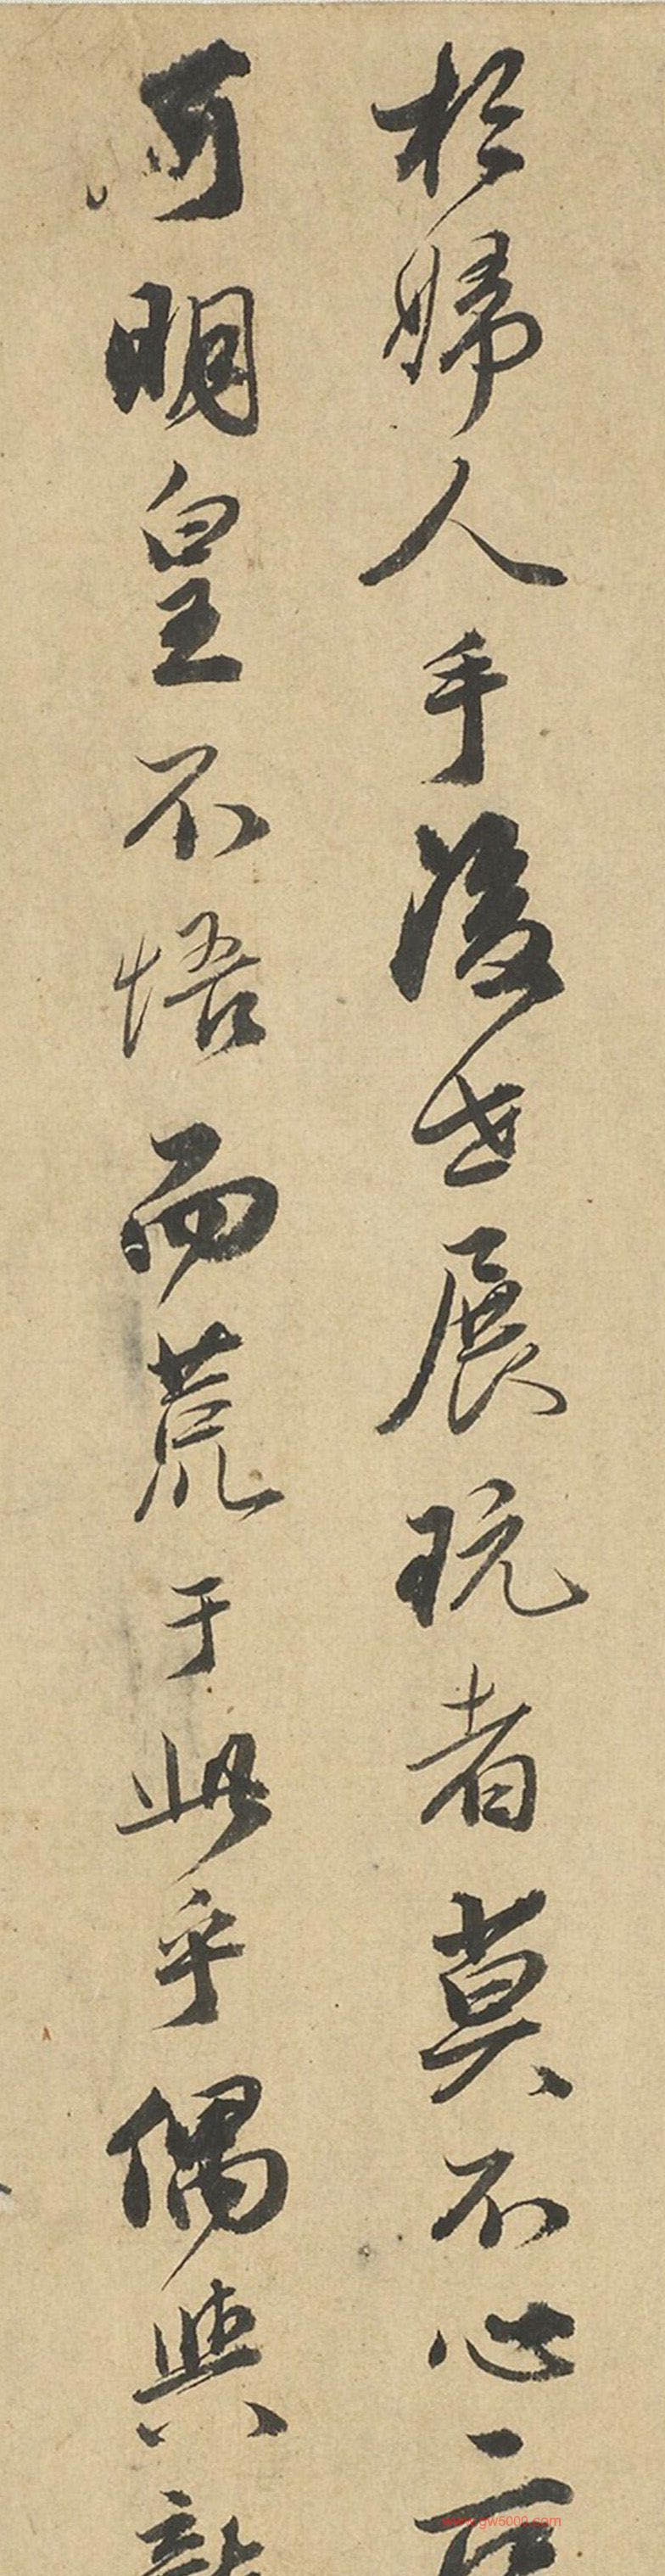 於婦人手後世展玩者莫不心
可明皇不悟而荒于此乎偶與
www.gw5000.com